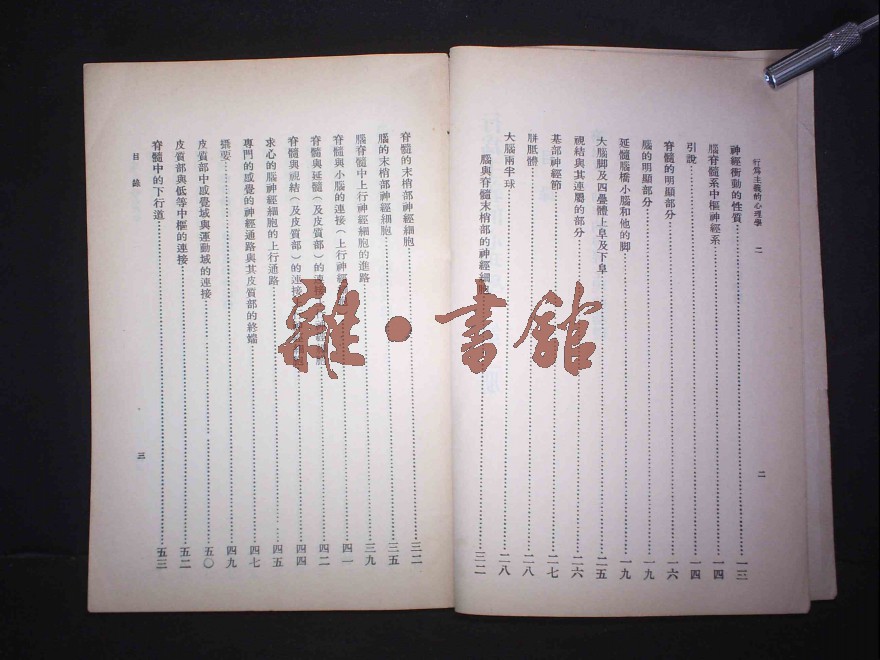 行爲主義的心理學 二
神經衝動的性質 一三
腦脊髓系中樞神經系 一四
引說 一四
脊髓的明顯部分 一六
腦的明顯部分 一九
延髓腦橋小腦和他的脚 一九
大腦脚及四疊體上臯及下臯 二五
視結與其連屬的部分 二六
基部神經節 二七
胼胝體 二八
大腦兩半球 二八
腦與脊髓末梢部的神經細胞 三二
二
脊髓的末梢部神經細胞 三二
腦的末梢部神經細胞 三五
腦脊髓中上行神經細胞的進路 三九
脊髓與小腦的連接（上行神經 四一
脊髓與延髓（及皮質部）的連接 四二
脊髓與視結（及皮質部）的連接 四四
求心的腦神經細胞的上行通路 四五
專門的感覺的神經通路與其皮質部的終端 四七
撮要 四九
皮質部中感覺域與運動域的連接 五〇
皮質部與低等中樞的連接 五二
脊髓中的下行道 五三
目錄
三
雜·書館